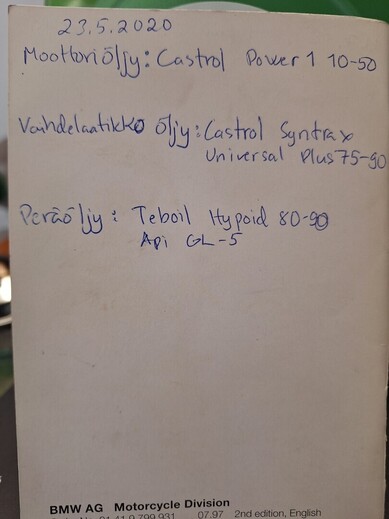 23.5.2020
Moottoriöljy: Castrol Power 1 10-50
Vaihdelaatikko Öljy: Castrol Syntrax
Universal Plus 75-90
Peräöljy: Teboil Hypoid 80-90
Api GL-5
BMW AG Motorcycle Division
01 41 9 799 931 07.97 2nd edition, English